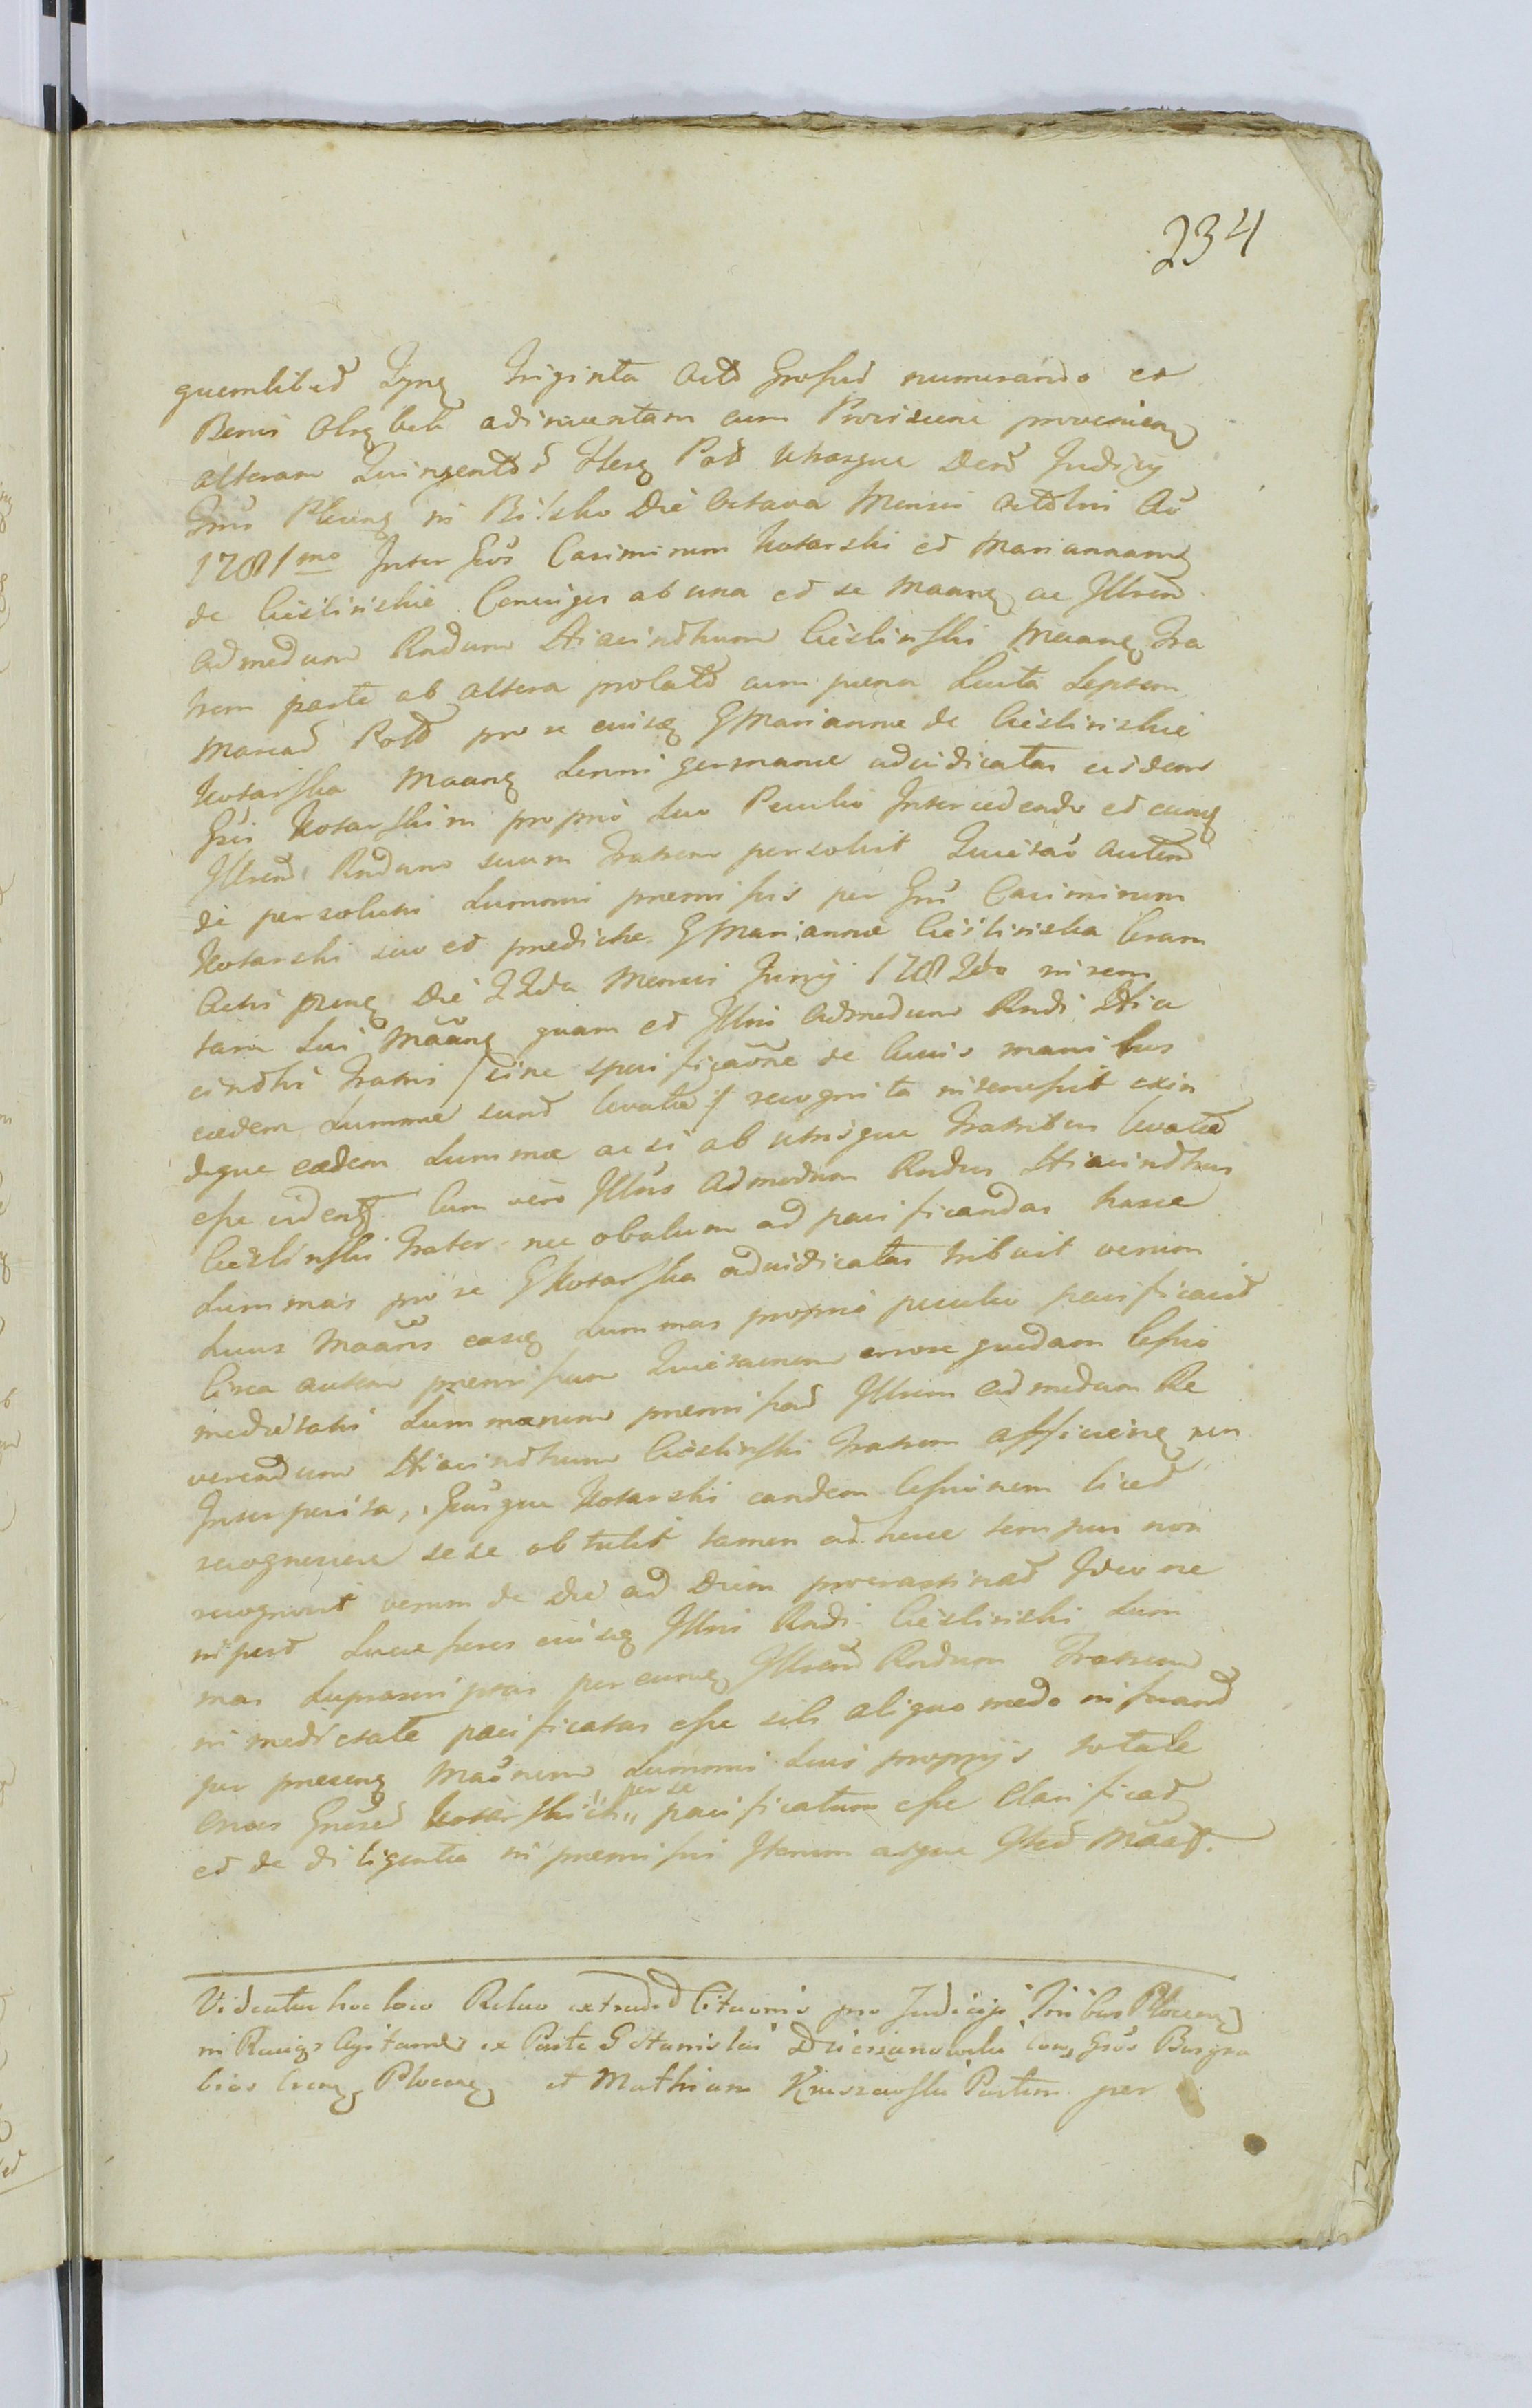 234
quemlibet Tynf Triginta Octo Grossed numerando ex
Bonis adinventam cum Provisione provenienf
alteram Quingentos Poło utrasque Judicij
Plocenf in Bielsko Die Octava Mensis Octobris Ao
1781mo Inter Gsos Casimirum Kotarski et Mariannam
de Cieslinskie Conuiges ab una et se Maanf ac Illrem
Admodum Rndum Hiacinthum Cieslinski Maanf Fra
trem parte ab altera prolato cum pæna Luita Septem
Marcas Polo pro se eiusq G Marianne de Cieslinskie
Kotarska Maanf Sorori germane adiudicatas eisdem
Gsis Kotarskim proprio suo Peculio Intercedendo et eunq
Illrem Rndum suum Fratrem persolvit Quietao autem
de persolutis Summis premissis per Gsum Casimirum
Kotarski suo et predicte G Marianne Cieslinska Coram
Actis prenf Die 22da Mensis Junij 1782do in rem
tam Sui Maanf quam et Illris Admodum Rndi Hia
cinthi Fratris /sine specificaone de cuius manibus
eædem Summæ sunt levatæ/ recognita insenssit exin
deque eædem Summæ ac si ab utrisque Fratribus levatæ
esse videntf Cum vero Illris Admodum Rndus Hiacinthus
Cieslinski Frater nec obolum ad pacificandas hasce
Summas pro se G Kotarska adiudicatas tribuit verum
Suus Maans easq Summas proprio peculio pacificavit
Circa autem premissam Quietaonem errore quodam Cessio
medietatis Summarum premissad Illrem Admodum Re
verendum Hiacinthum Cieslinski Fratrem afficienf non
Interposita, Gsusque Kotarski eandem Cessionem licet
recognoscere sese obtulit tamen ad hucce tempus non
recognovit verum de die ad Diem procrastinat Ideo ne
inpost Successores eiusq Illris Rndi Cieslinski Sum
mas Suprascriptas per eunq Illrem Rndum Fratrem
in medietate pacificatas esse sibi aliquo modo
per presenf Maonem Summis Suis proprijs totale
onus Gsosed Kotarskich "per se" pacificatum esse Clarificat
et de diligentia in premissis Iterum atque Ited Maatf.
Videatur hoc loco Relao extradit Citaonis pro Judicijs Tribus Plocenf
in Raciąz Agitand ex Parte G Stanislai Dzierzanowski Conf Gsos Burgra
bios Crenf Plocenf et Mathiam Kruszewski Partem per